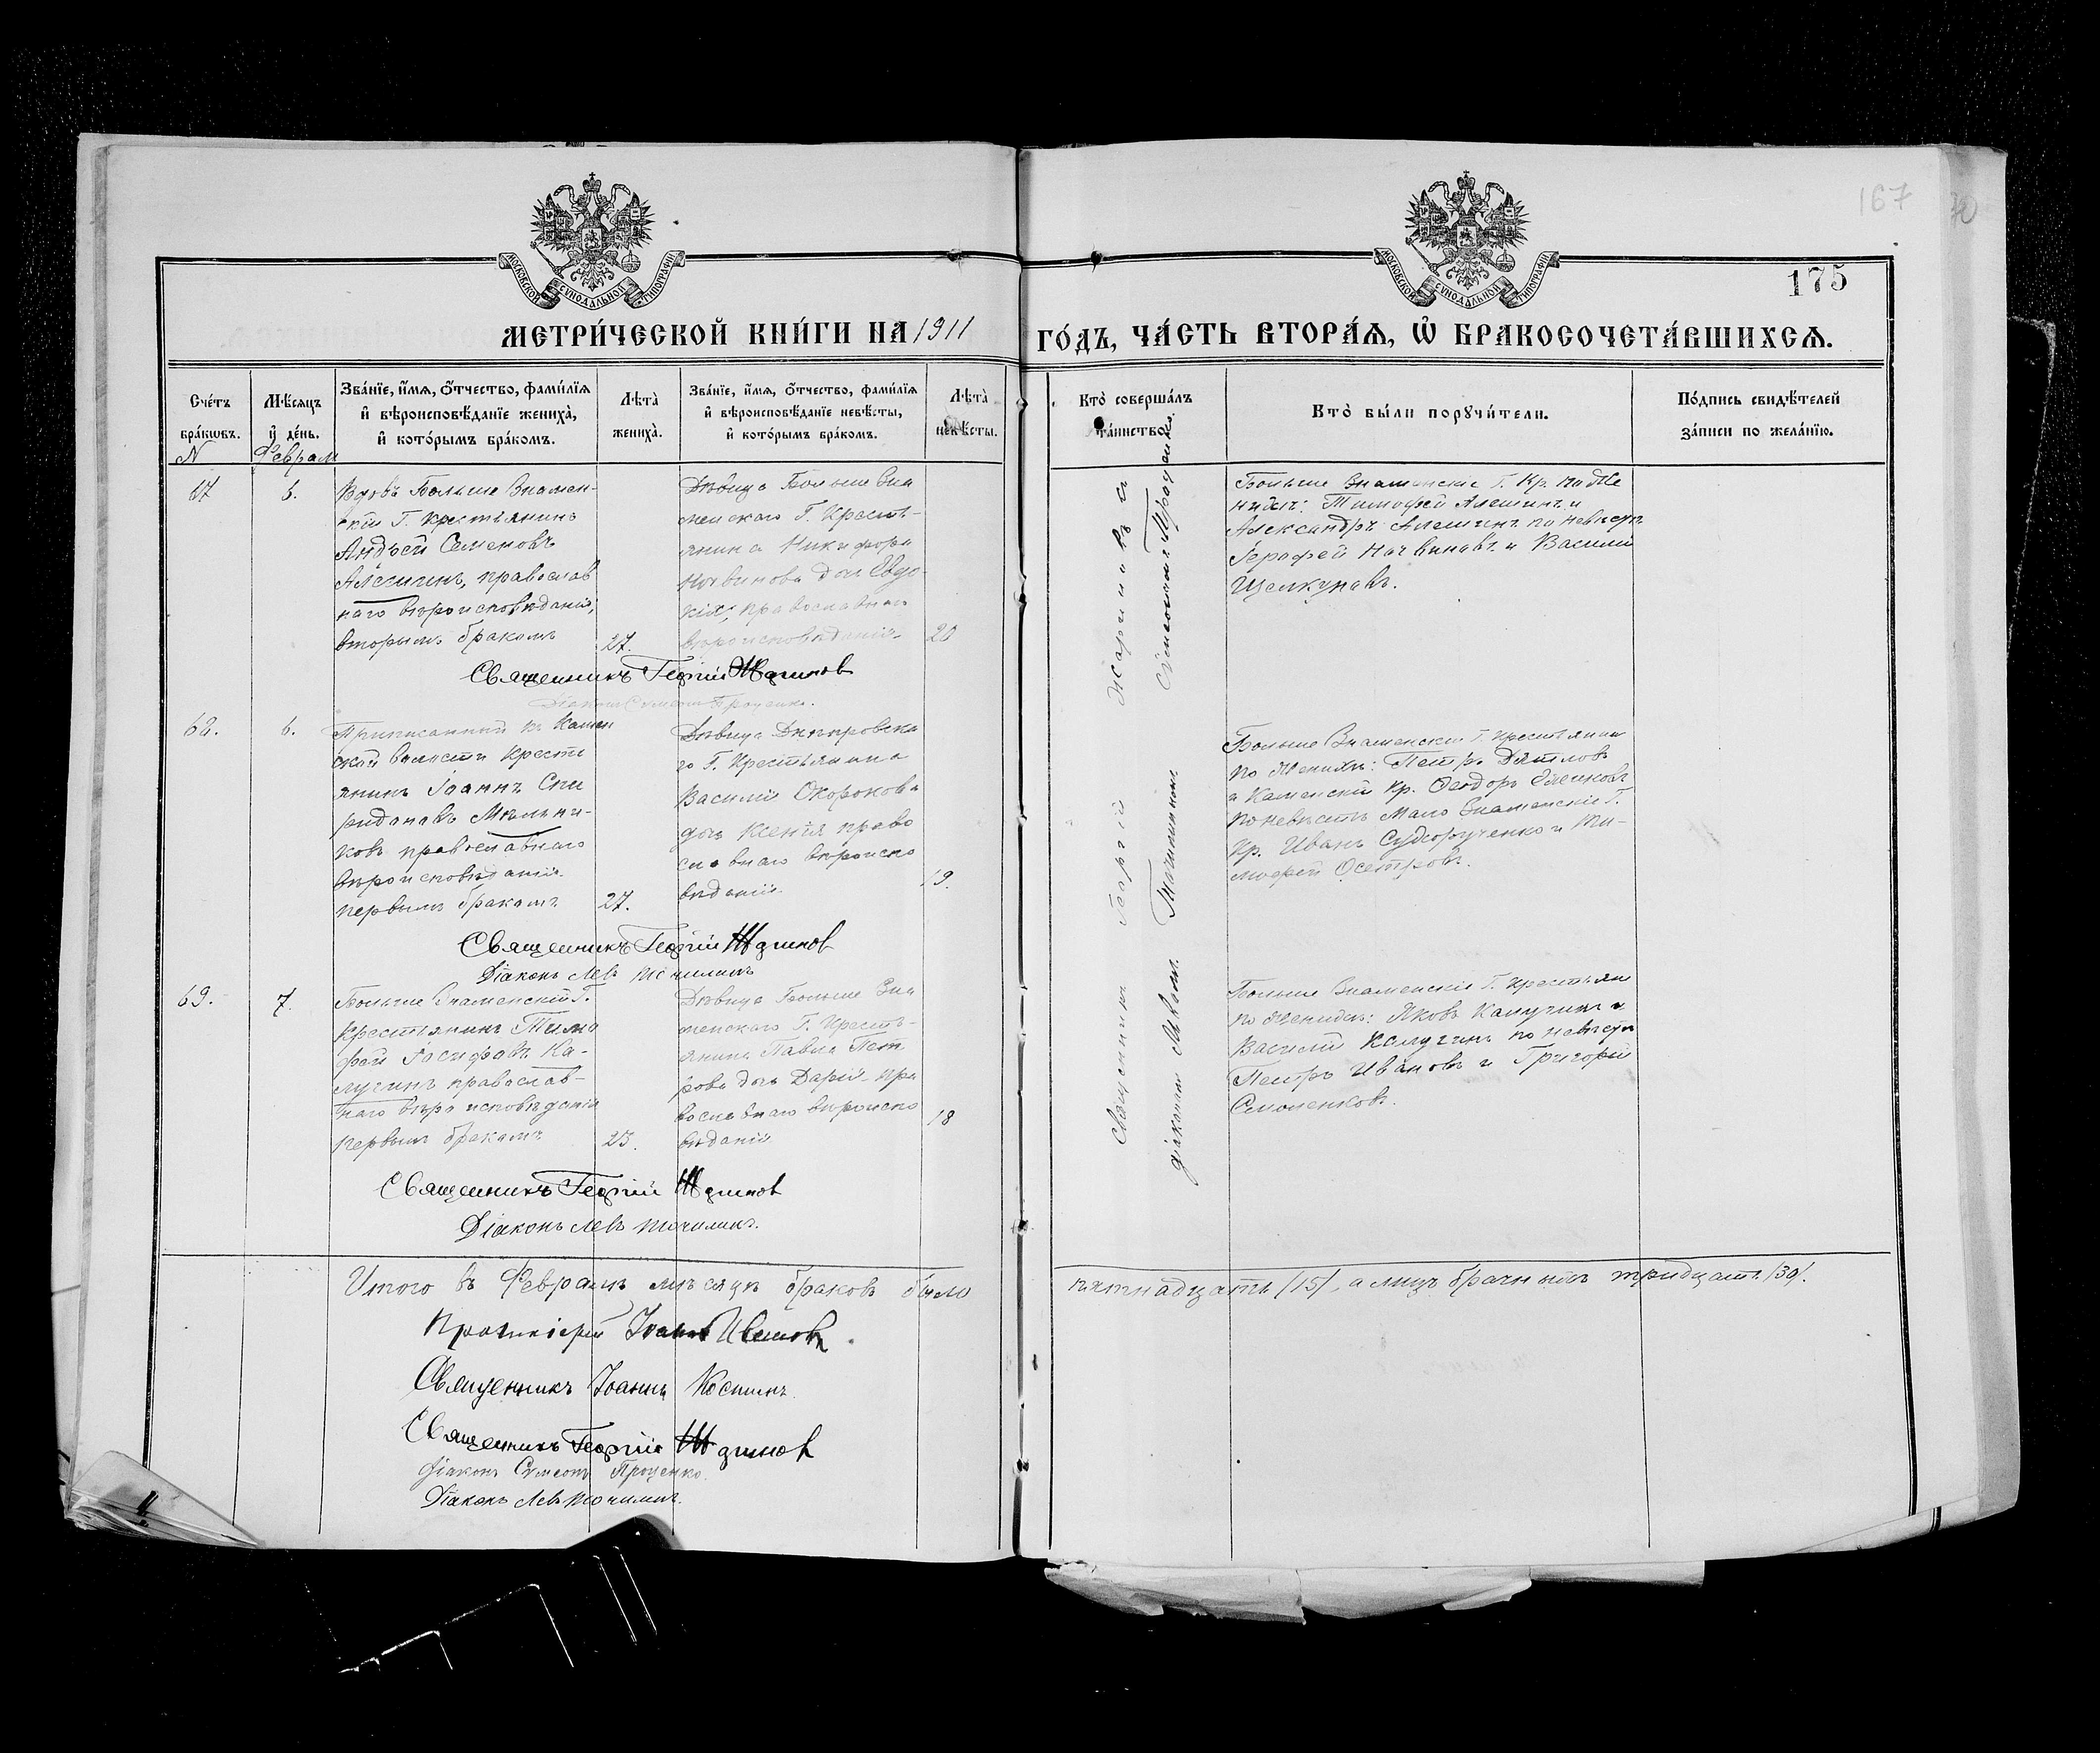 167
175
МОСКОВСКОЙ СУНОДАЛЬНОЙ ТИПОГРАФІИ
МОСКОВСКОЙ СУНОДАЛЬНОЙ ТИПОГРАФІИ
МЕТРИ́ЧЕСКОЙ КНИ́ГИ НА 1911
ГО́ДЪ, ЧА́СТЬ ВТОРА́Я, Ѡ҆ БРАКОСОЧЕТА́ВШИХСЯ.
Сче́тъ бра́кѡвъ.
Мѣ́сяцъ и҆ де́нь.
Зва́нїе, и҆́мя, ѻ҆́тчество, фами́лїя
и҆ вѣроисповѣ́данїе жениха̀,
и҆ кото́рымъ бра́комъ.
Лѣта̀ жениха̀.
Зва́нїе, и҆́мя, ѻ҆́тчество, фами́лїя
и҆ вѣроисповѣ́данїе невѣ́сты,
и҆ кото́рымъ бра́комъ.
Лѣта̀ невѣ́сты.
Кто̀ соверша́лъ та́инство.
Кто̀ бы́ли порꙋчи́тели.
По́дпись свидѣ́телей
за́писи по жела́нїю.
N
Февраль
67
6.
Вдовъ Больше Знамен-
скій Г. крестьянинъ
Андрей Семеновъ
Алешинъ, православ
наго вѣроисповѣданія,
вторымъ бракомъ
27.
Дѣвица Больше Зна
менскаго Г. Кресть-
янина Никифора
дочь Евдо-
кія, православнаго
вѣроисповѣданія
20
Больше Знаменскіе Г. Кр. по же
нихѣ: Тимофей Алешинъ и
Александръ Алешинъ по невѣстѣ
и Василій
Щелкуновъ.
Священникъ Георгій Жариновъ
Діаконъ Сѵмеонъ Проценко.
68.
6.
Приписанный къ Камен
ской волости Кресть
янинъ Іоаннъ Спи
ридоновъ Мельни-
ковъ православнаго
вѣроисповѣданія
первымъ бракомъ
27.
Дѣвица Днѣпровска
го Г. Крестьянина
Василія Окорокова
дочь Ксенія право
славнаго вѣроиспо
вѣданія
19.
Больше Знаменскій Г. Крестьянин
по женихѣ: Петръ Дятловъ
и Каменскій Кр. Феодоръ
по невѣстѣ Мало Знаменскіе Г.
Кр. Иванъ и Ти-
мофей Осетровъ.
Священникъ Георгій Жариновъ
Діаконъ Левъ Точилинъ
69.
7.
Больше Знаменскій Г.
Крестьянинъ Тимо
фей Іосифовъ Ка-
лугинъ православ-
наго вѣроисповѣданія
первымъ бракомъ
23.
Дѣвица Больше Зна
менскаго Г. Кресть-
янина Павла Пет
рова дочь Дарія пра
вославнаго вѣроиспо
вѣданія
18
Больше Знаменскіе Г. крестьяне
по женихѣ: Яковъ Калугинъ и
Василій Калугинъ по невѣстѣ
Петръ Ивановъ и Григорій
Смоленковъ.
Священникъ Георгій Жариновъ
Діаконъ Левъ Точилинъ.
Священникъ Георгій Жариновъ съ
діаконами Львомъ Точилинымъ Сѵмеономъ Проценко.
Итого въ Февралѣ мѣсяцѣ браковъ было
пятнадцать /15/, а лицъ брачныхъ тридцать /30/.
Протоіерей Іоаннъ
Священникъ Іоаннъ Костинъ
Священникъ Георгій Жариновъ
Діаконъ Сѵмеонъ Проценко.
Діаконъ Левъ Точилинъ.